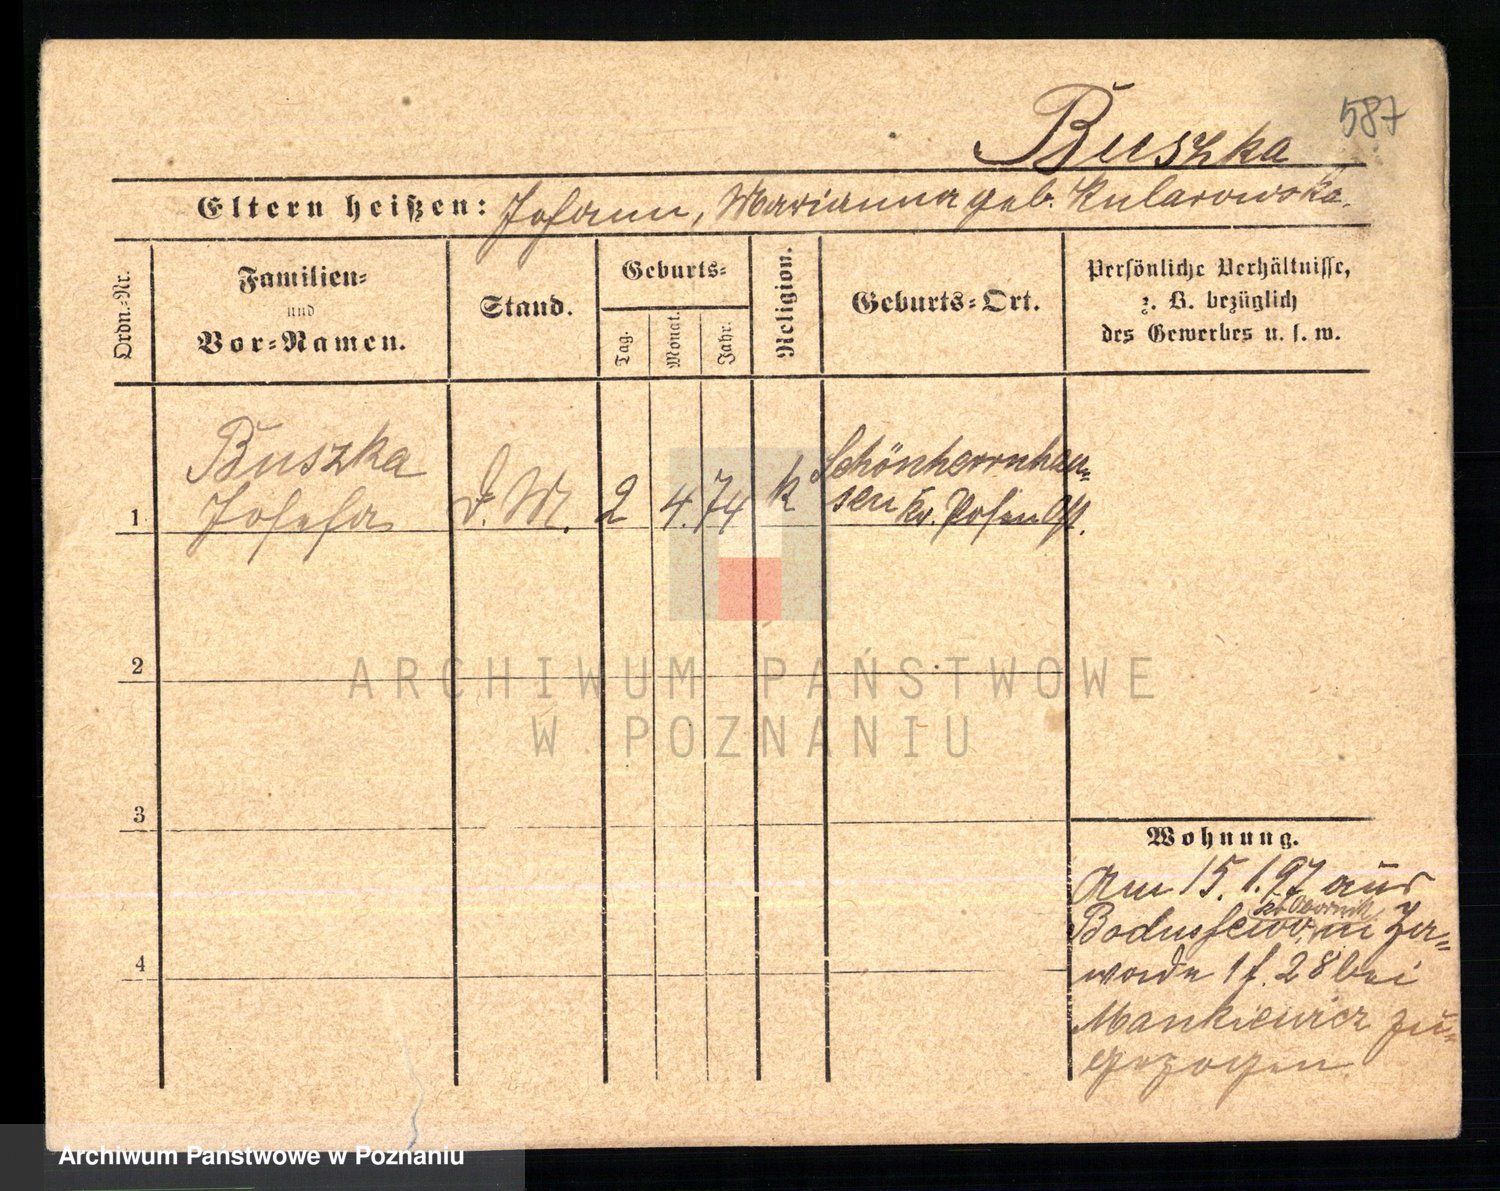 587
Buszka
Eltern heißen: Johann, Marianna geb. Kularowska.
Ordn.-Nr.
Familien-
und
Vor-Namen.
Stand.
Geburts-
Tag.
Monat.
Jahr.
Religion.
Geburts-Ort.
Persönliche Verhältnisse,
z. B. bezüglich
des Gewerbes u. s. w.
Buszka
Josefa
1
D. M.
2
4.
74
k
Schönherrnhau-
sen Kr. Posen Ost.
2
3
4
Wohnung.
Am 15. 1. 97 aus
Kr Obornik
Boduschewo, in Za-
wade 1 f. 28 bei
Mankiewicz zu-
gezogen
ARCHIWUM PAŃSTWOWE
W POZNANIU
Archiwum Państwowe w Poznaniu